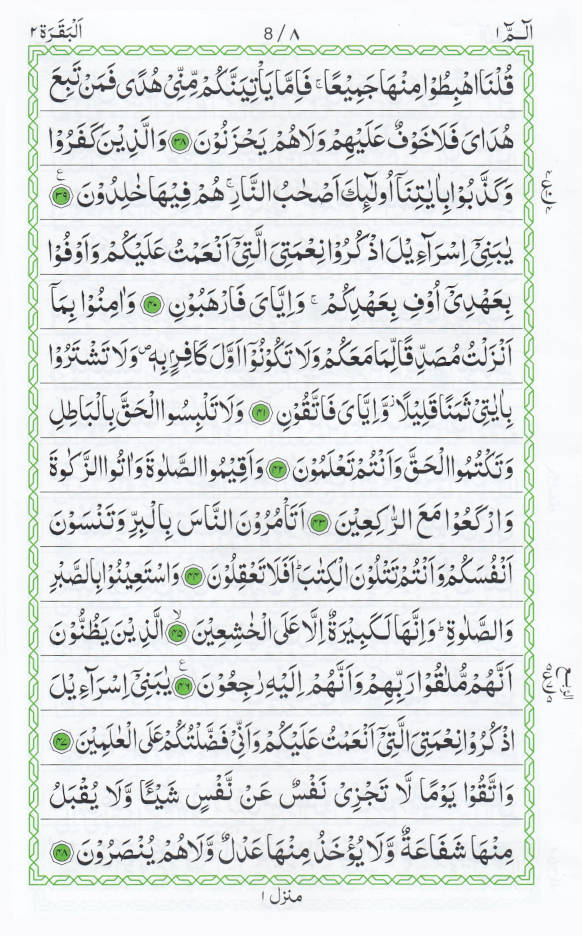 الٓمّٓ ١ 8/٨ اَلْبَقَرَة ٢
قُلْنَا اهْبِطُوْا مِنْهَا جَمِيْعًا ۚ فَاِمَّا يَاْتِيَنَّكُمْ مِّنِّىْ هُدًى فَمَنْ تَبِعَ
هُدَاىَ فَلَا خَوْفٌ عَلَيْهِمْ وَلَا هُمْ يَحْزَنُوْنَ ٣٨ وَالَّذِيْنَ كَفَرُوْا
وَكَذَّبُوْا بِاٰيٰتِنَآ اُولٰٓئِكَ اَصْحٰبُ النَّارِ ۚ هُمْ فِيْهَا خٰلِدُوْنَ ٣٩ ع
يٰبَنِىْٓ اِسْرَآءِيْلَ اذْكُرُوْا نِعْمَتِىَ الَّتِىْٓ اَنْعَمْتُ عَلَيْكُمْ وَاَوْفُوْا
بِعَهْدِىْٓ اُوْفِ بِعَهْدِكُمْ ۚ وَاِيَّاىَ فَارْهَبُوْنِ ٤٠ وَاٰمِنُوْا بِمَآ
اَنْزَلْتُ مُصَدِّقًا لِّمَا مَعَكُمْ وَلَا تَكُوْنُوْٓا اَوَّلَ كَافِرٍۢ بِهٖ ۖ وَلَا تَشْتَرُوْا
بِاٰيٰتِىْ ثَمَنًا قَلِيْلًا ۡ وَّاِيَّاىَ فَاتَّقُوْنِ ٤١ وَلَا تَلْبِسُوا الْحَقَّ بِالْبَاطِلِ
وَتَكْتُمُوا الْحَقَّ وَاَنْتُمْ تَعْلَمُوْنَ ٤٢ وَاَقِيْمُوا الصَّلٰوةَ وَاٰتُوا الزَّكٰوةَ
وَارْكَعُوْا مَعَ الرّٰكِعِيْنَ ٤٣ اَتَاْمُرُوْنَ النَّاسَ بِالْبِرِّ وَتَنْسَوْنَ
اَنْفُسَكُمْ وَاَنْتُمْ تَتْلُوْنَ الْكِتٰبَ ؕ اَفَلَا تَعْقِلُوْنَ ٤٤ وَاسْتَعِيْنُوْا بِالصَّبْرِ
وَالصَّلٰوةِ ؕ وَاِنَّهَا لَكَبِيْرَةٌ اِلَّا عَلَى الْخٰشِعِيْنَ ٤٥ ۙ الَّذِيْنَ يَظُنُّوْنَ
اَنَّهُمْ مُّلٰقُوْا رَبِّهِمْ وَاَنَّهُمْ اِلَيْهِ رٰجِعُوْنَ ٤٦ ع يٰبَنِىْٓ اِسْرَآءِيْلَ
اذْكُرُوْا نِعْمَتِىَ الَّتِىْٓ اَنْعَمْتُ عَلَيْكُمْ وَاَنِّىْ فَضَّلْتُكُمْ عَلَى الْعٰلَمِيْنَ ٤٧
وَاتَّقُوْا يَوْمًا لَّا تَجْزِىْ نَفْسٌ عَنْ نَّفْسٍ شَيْـًٔا وَّلَا يُقْبَلُ
مِنْهَا شَفَاعَةٌ وَّلَا يُؤْخَذُ مِنْهَا عَدْلٌ وَّلَا هُمْ يُنْصَرُوْنَ ٤٨
منزل ١